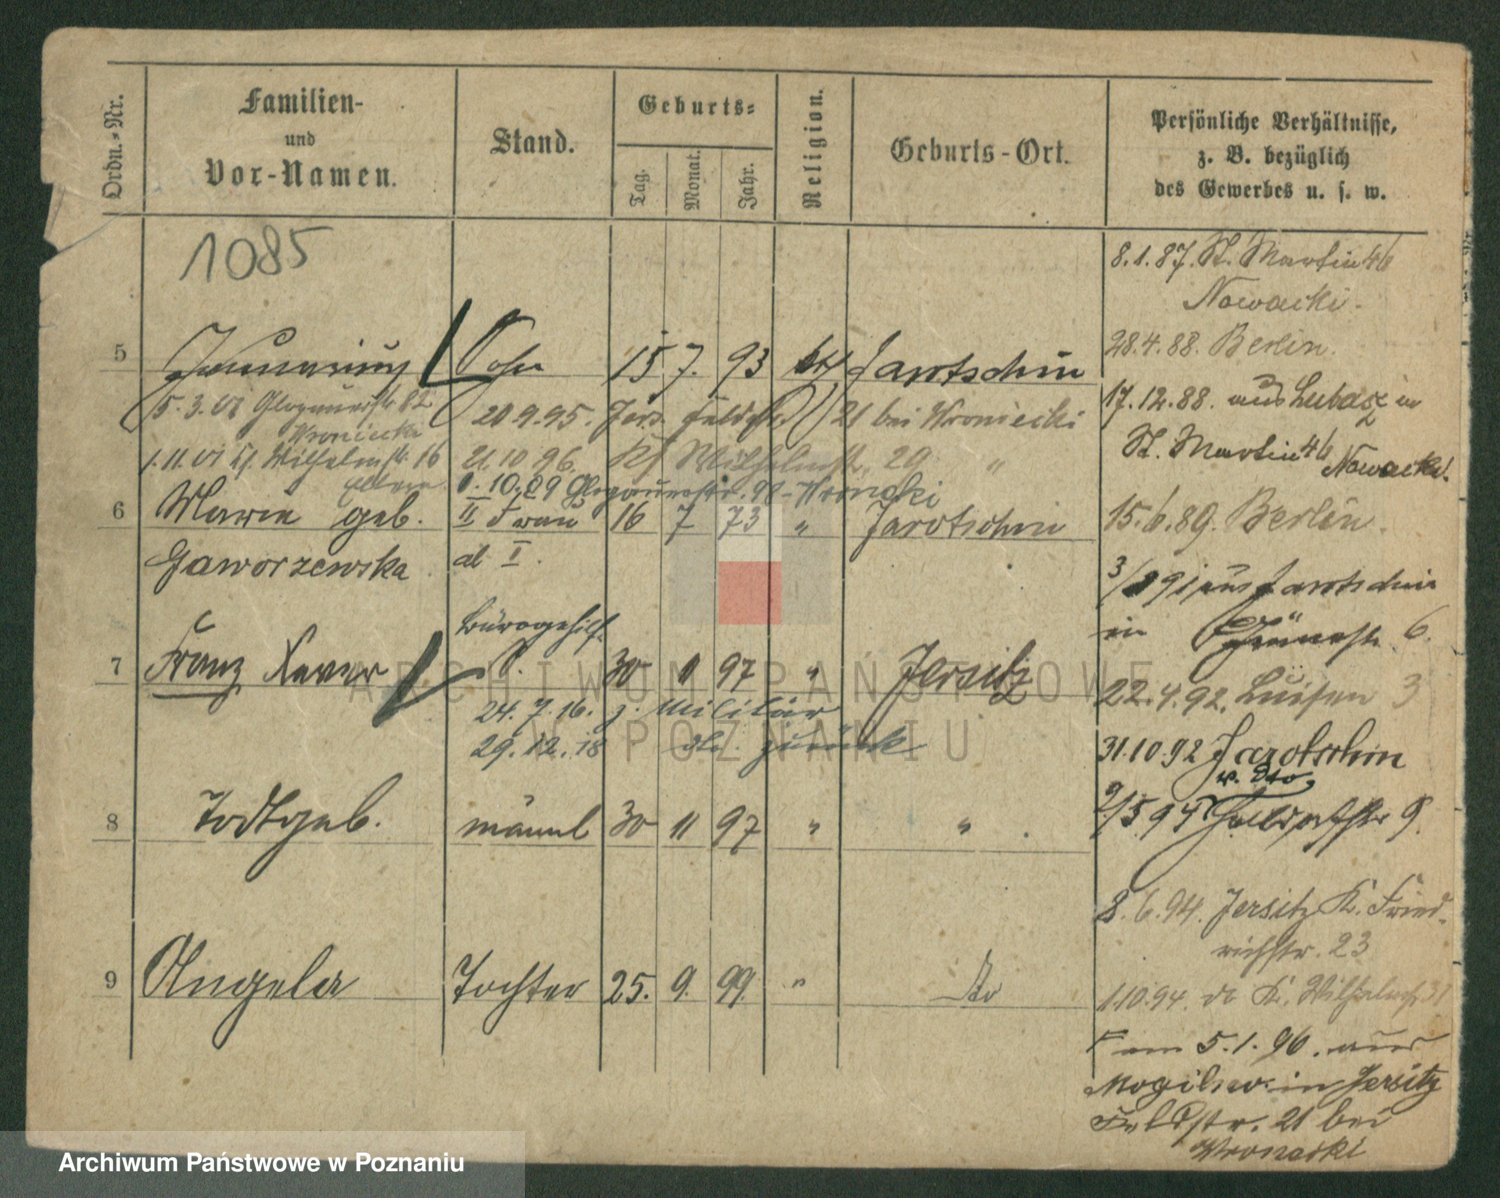 Ordn.-Nr.
Familien-
und
Vor-Namen.
Stand.
Geburts-
Tag.
Monat.
Jahr.
Religion.
Geburts-Ort.
Persönliche Verhältnisse,
z. B. bezüglich
des Gewerbes u. s. w.
1085
8.1.87. St. Martin 46
Nowacki.
28.4.88. Berlin.
5 Januarius Sohn 15 7. 93 kth Jarotschin
17.12.88. aus Lubasz in
St. Martin 46 Nowacki.
5.3.01 Glogauerstr 82
Wroniecki
20.9.95. Jers. Feldstr. 21 bei Wroniecki
1.11.01 Wilhelmstr. 16
Eltern
21.10.96. Wilhelmstr. 29 "
1.10.09 Glogauerstr. 90 - Wronecki
6 Marie geb. II Frau 16 7 73 " Jarotschin
Gaworzewska ad I.
15.6.89. Berlin.
aus Jarotschin
in 6.
Bürogehilf.
7 Franz Xaver S. 30 11 97 " Jersitz
24.7.16. z. Militär
29.12.18 zurück
22.4.92. Luisen 3
31.10.92 Jarotschin
v. Dto
8 Todtgeb. männl 30 11 97 " "
9.
8.6.94. Jersitz K. Fried-
richstr. 23
9 Angela Tochter 25. 9. 99. " do
1.10.94. do K. Wilhelmstr 31
am 5.1.96. aus
Mogilno in Jersitz
Feldstr. 21 bei
Wronecki
ARCHIWUM PAŃSTWOWE
W POZNANIU
Archiwum Państwowe w Poznaniu